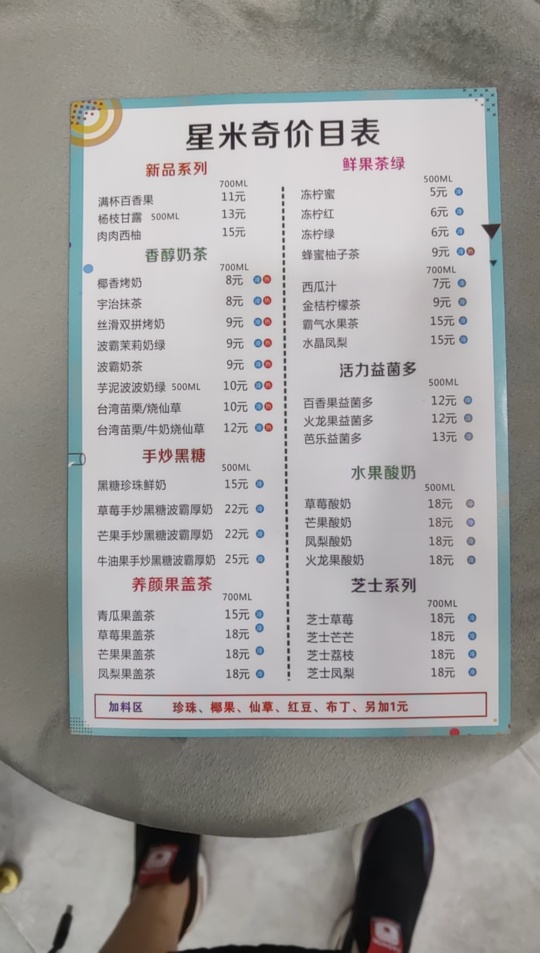 星米奇价目表
新品系列
700ML
满杯百香果 11元
杨枝甘露 500ML 13元
肉肉西柚 15元
香醇奶茶
700ML
椰香烤奶 8元 冷 热
宇治抹茶 8元 冷 热
丝滑双拼烤奶 9元 冷 热
波霸茉莉奶绿 9元 冷 热
波霸奶茶 9元 冷 热
芋泥波波奶绿 500ML 10元 冷 热
台湾苗栗/烧仙草 10元 冷 热
台湾苗栗/牛奶烧仙草 12元 冷 热
手炒黑糖
500ML
黑糖珍珠鲜奶 15元 冷
草莓手炒黑糖波霸厚奶 22元 冷
芒果手炒黑糖波霸厚奶 22元 冷
牛油果手炒黑糖波霸厚奶 25元 冷
养颜果盖茶
700ML
青瓜果盖茶 15元 冷
草莓果盖茶 18元 冷
芒果果盖茶 18元 冷
凤梨果盖茶 18元 冷
鲜果茶绿
500ML
冻柠蜜 5元 冷
冻柠红 6元 冷
冻柠绿 6元 冷
蜂蜜柚子茶 9元 冷 热
700ML
西瓜汁 7元 冷
金桔柠檬茶 9元 冷
霸气水果茶 15元 冷
水晶凤梨 15元 冷
活力益菌多
500ML
百香果益菌多 12元 冷
火龙果益菌多 12元 冷
芭乐益菌多 13元 冷
水果酸奶
500ML
草莓酸奶 18元 冷
芒果酸奶 18元 冷
凤梨酸奶 18元 冷
火龙果酸奶 18元 冷
芝士系列
700ML
芝士草莓 18元 冷
芝士芒芒 18元 冷
芝士荔枝 18元 冷
芝士凤梨 18元 冷
加料区 珍珠、椰果、仙草、红豆、布丁、另加1元